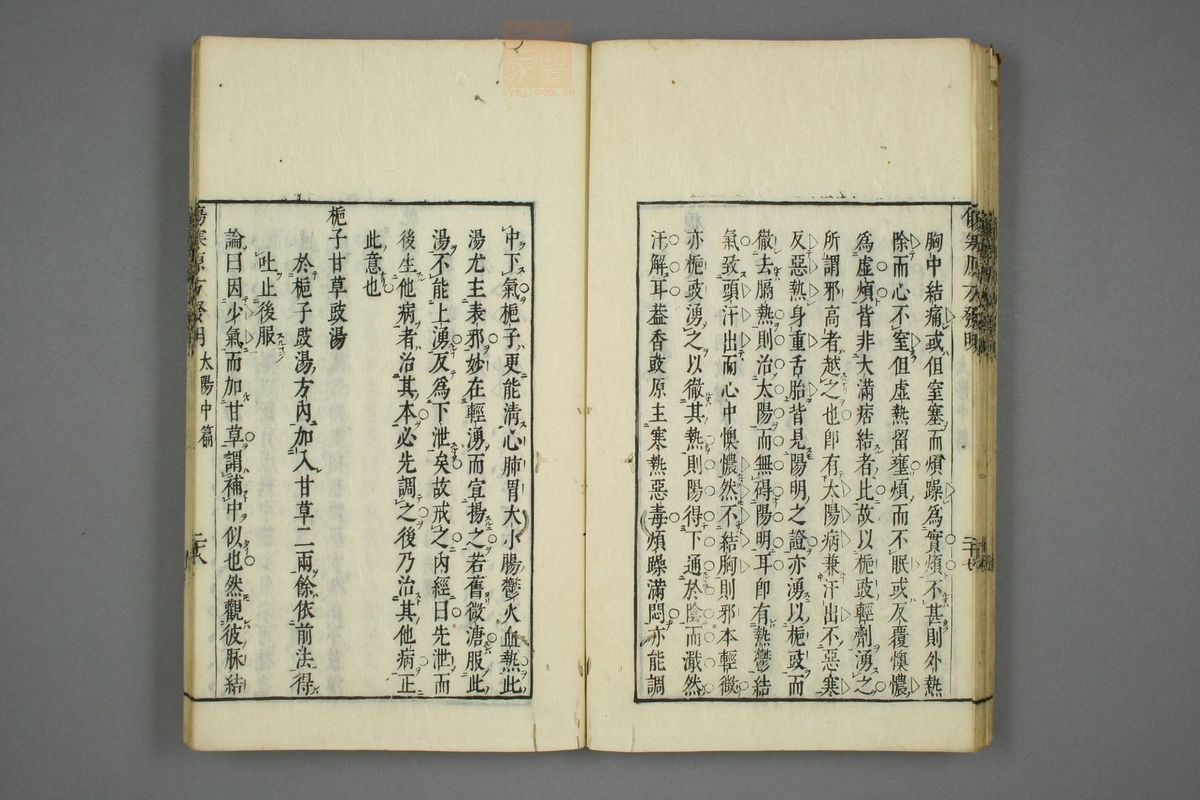 傷寒原方發明
胸中結痛或但窒塞而煩躁為實煩不甚則外熱
除而心不窒但虛熱留壅煩而不眠或反覆懊憹
為虛煩皆非大滿痞結者比故以梔豉輕劑湧之
所謂邪高者越之也卽有太陽病兼汗出不惡寒
反惡熱身重舌胎皆見陽明之證亦湧以梔豉而
徹去膈熱則治太陽而無碍陽明耳卽有熱鬱結
氣致頭汗出而心中懊憹然不結胸則邪本輕微
亦梔豉湧之以徹其熱則陽得下通於陰而濈然
汗解耳葢香豉原主寒熱惡毒煩躁滿悶亦能調
中下氣梔子更能清心肺胃大小腸鬱火血熱此
湯尤主表邪妙在輕湧而宣揚之若舊微溏服此
湯不能上湧反為下泄矣故戒之內經曰先泄而
後生他病者治其本必先調之後乃治其他病正
此意也
梔子甘草豉湯
於梔子豉湯方內加入甘草二兩餘依前法得
吐止後服
論曰因少氣而加甘草謂補中似也然觀彼脈結
傷寒原方發明 太陽中篇 二十八
zysj.com.cn